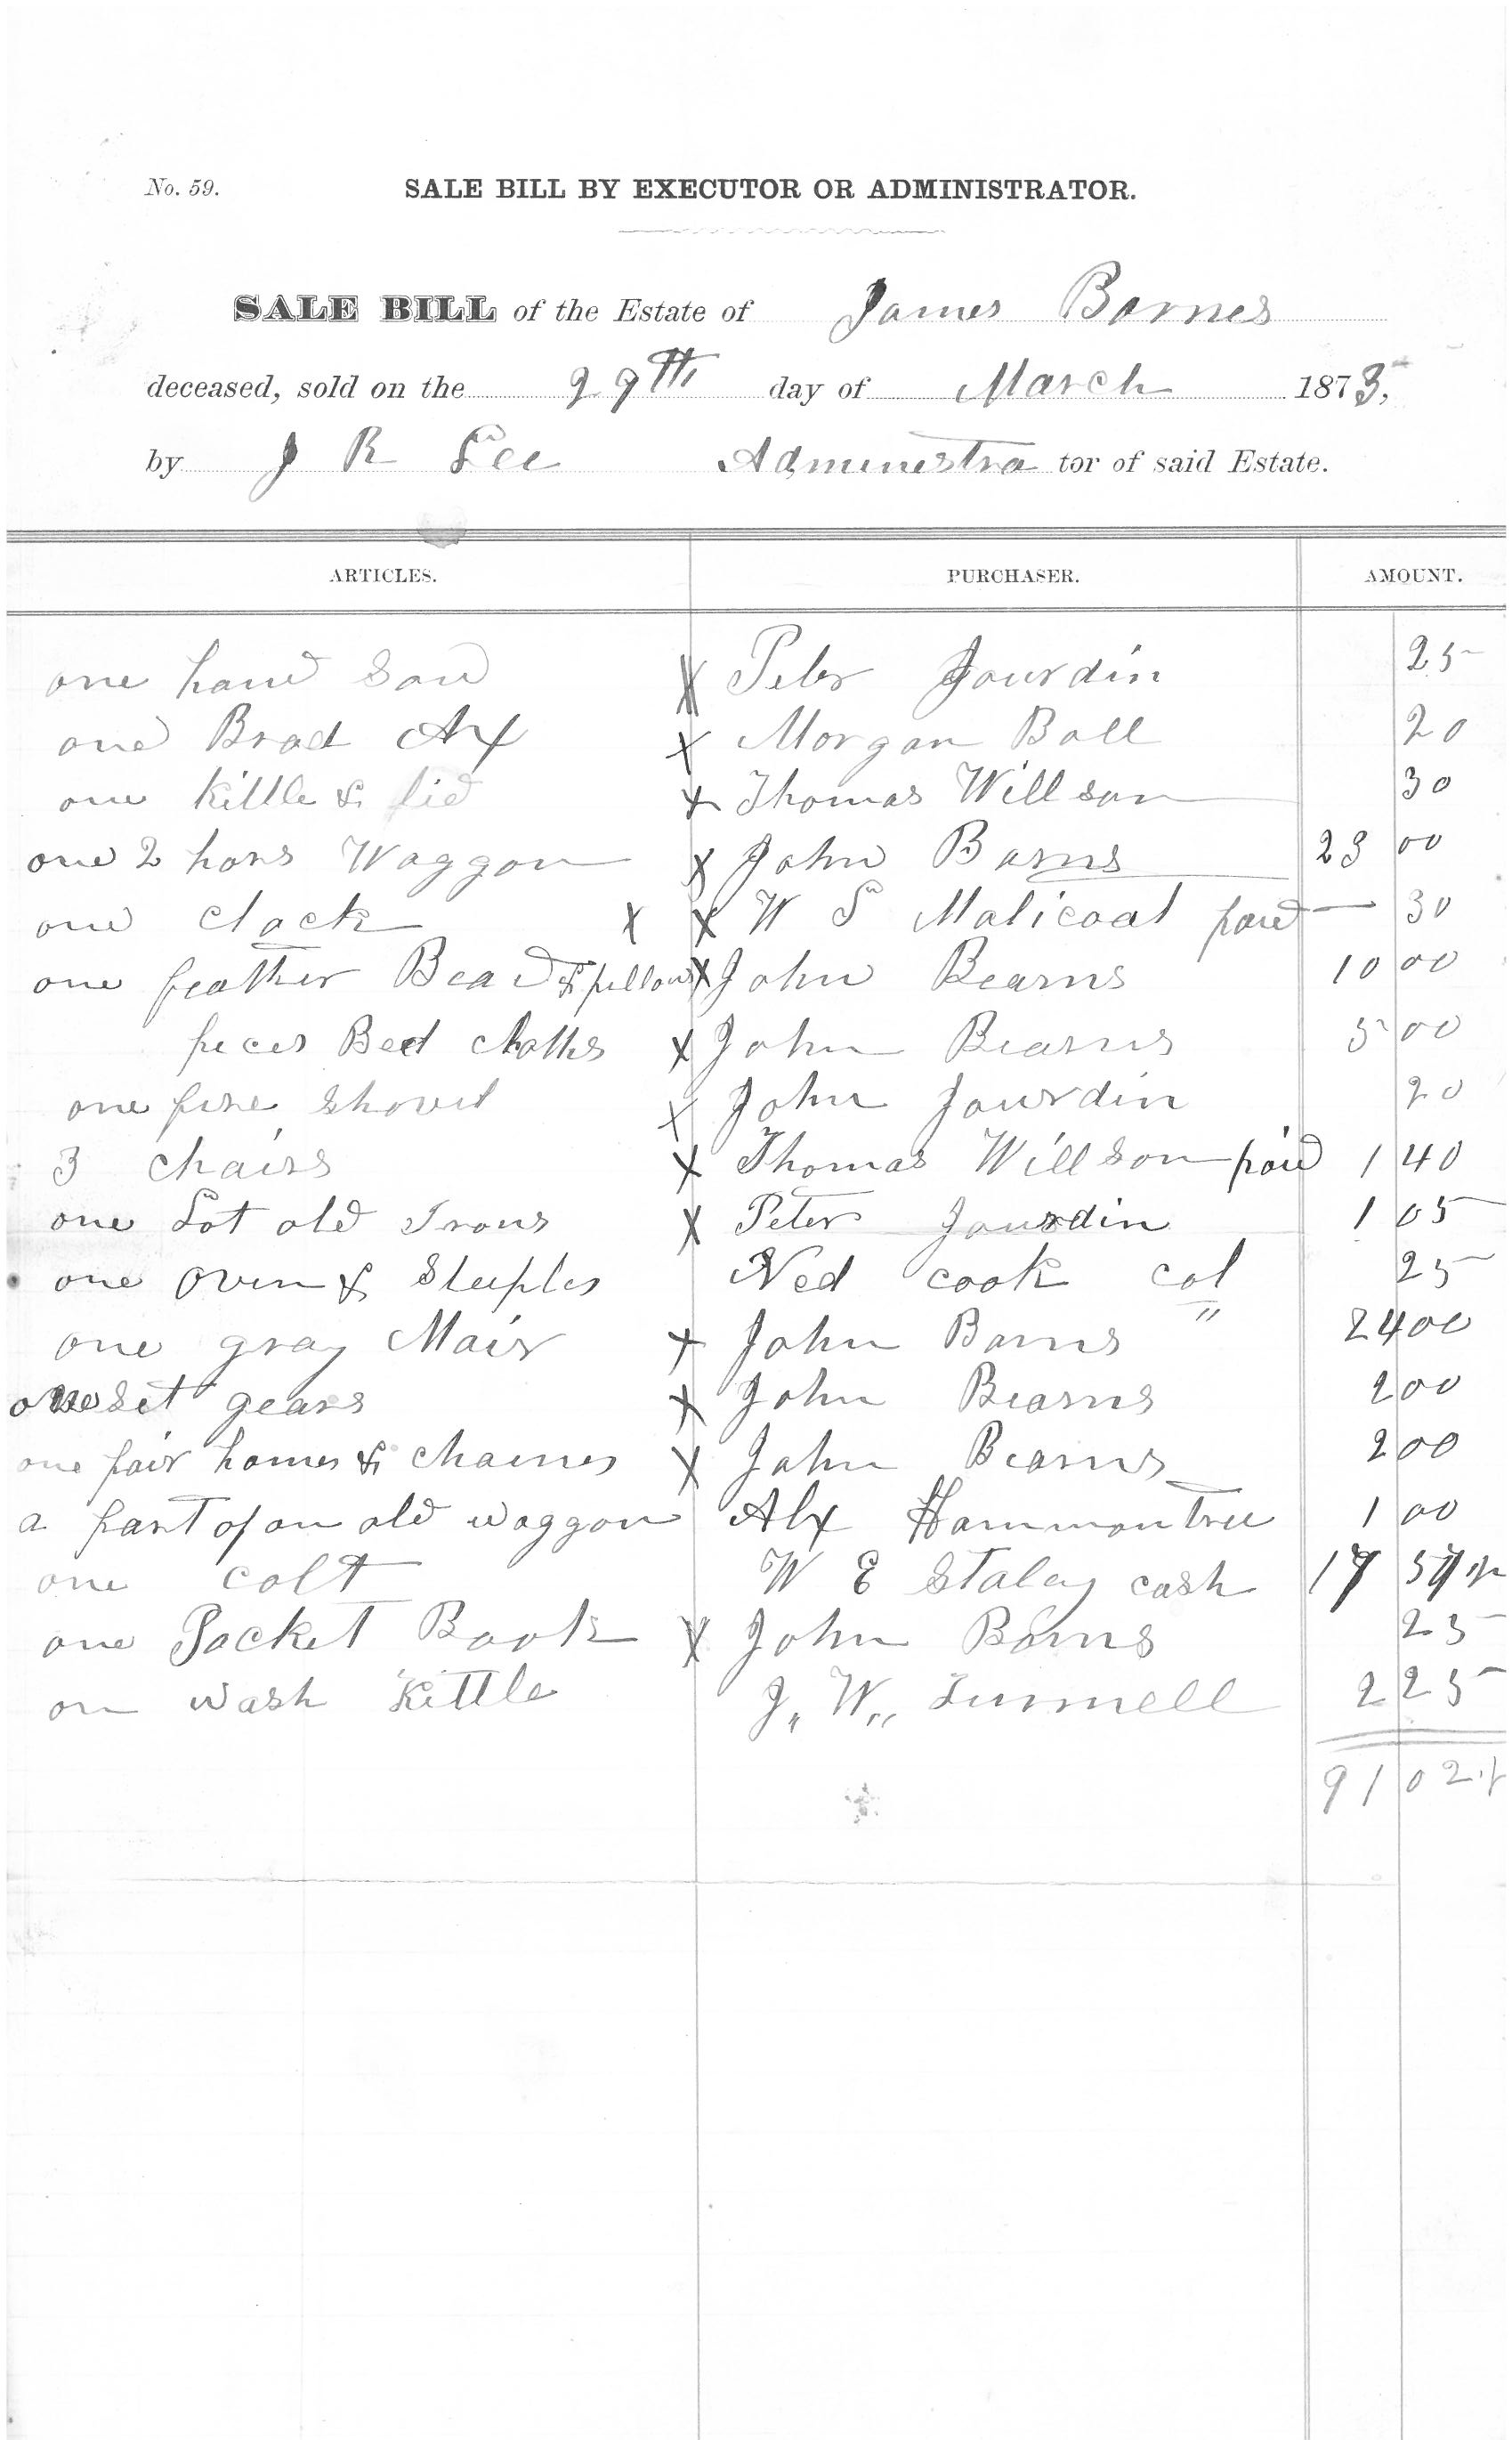 No. 59. SALE BILL BY EXECUTOR OR ADMINISTRATOR.
SALE BILL of the Estate of James Barnes
deceased, sold on the 29th day of March 1873,
by J R Lee Administra tor of said Estate.
ARTICLES. PURCHASER. AMOUNT.
one hand Saw X Peter Jourdin 25
one Brad Ax X Morgan Ball 20
one kittle & lid X Thomas Willson 30
one 2 hors Waggon X John Barns 23 00
one clock X X W S Malicoat paid 30
one feather Bead & pillows X John Bearns 10 00
peces Bed cloths X John Bearns 5 00
one fire Shovel X John Jourdin 20
3 chairs X Thomas Willson paid 1 40
one Lot old Irons X Peter Jourdin 1 05
one oven & Steeples Ned cook col 25
one gray Mair X John Barns 24 00
one Set gears X John Bearns 2 00
one pair hames & chaines X John Bearns 2 00
a part of an old waggon Alx Hammontree 1 00
one colt W E Staley cash 17
one Pocket Book X John Barns 25
on wash Kittle J,, W,, Tunnell 2 25
91 02